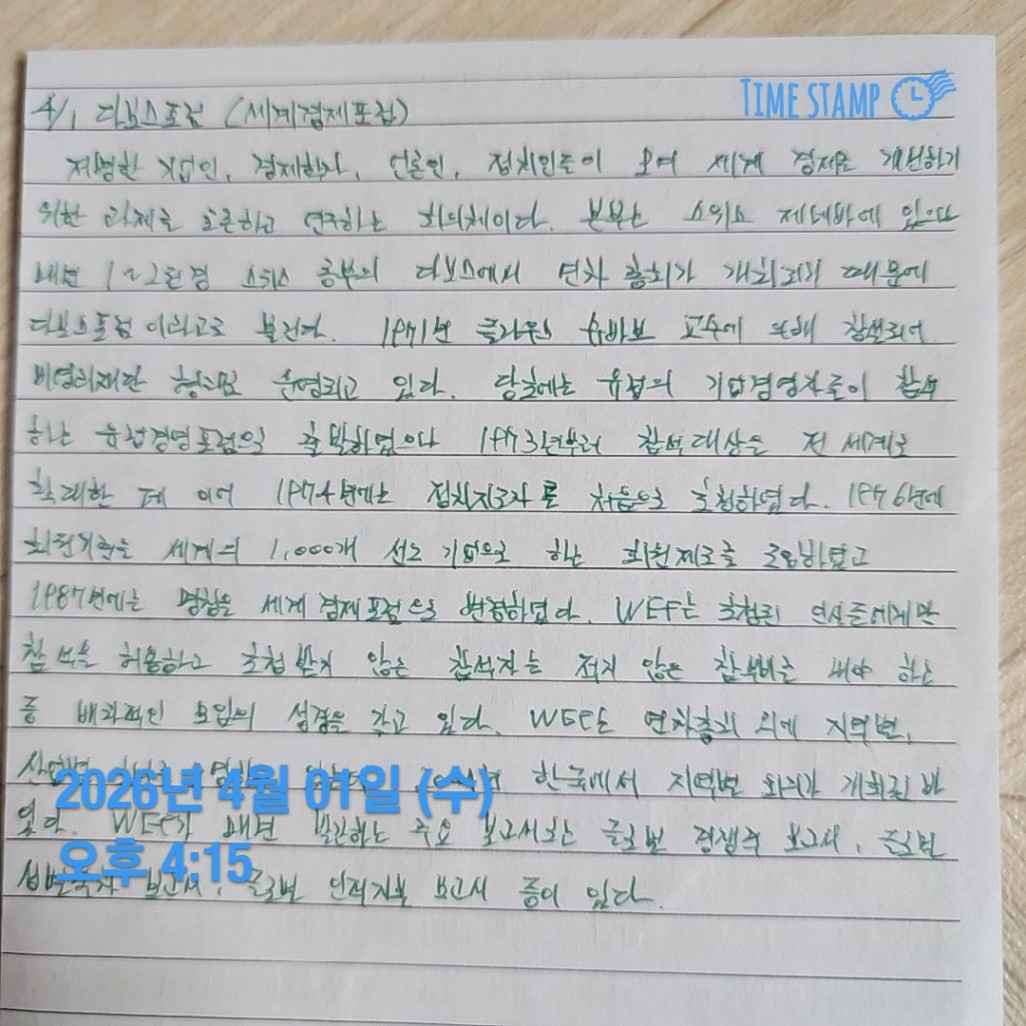 TIME STAMP
4/1 다보스포럼 (세계경제포럼)
저명한 기업인, 경제학자, 언론인, 정치인들이 모여 세계 경제를 개선하기
위한 과제를 토론하고 연구하는 회의체이다. 본부는 스위스 제네바에 있으다
매년 1~2월경 스위스 동부의 다보스에서 연차 총회가 개최되기 때문에
다보스포럼이라고도 불린다. 1971년 클라우스 슈바보 교수에 의해 창설되어
비영리재단 형태로 운영되고 있다. 당초에는 유럽의 기업경영자들이 참석
하는 유럽경영포럼으로 출발하였으다 1973년부터 참석대상을 전 세계로
확대한 데 이어 1974년에는 정치지도자를 처음으로 초청하였다. 1976년에
회원기준을 세계의 1,000개 선도 기업으로 하는 회원제도를 도입하였고
1987년에는 명칭을 세계경제포럼으로 변경하였다. WEF는 초청된 인사들에게만
참석을 허용하고 초청받지 않은 참석자는 적지 않은 참석비를 내야 하는
등 배타적인 모임의 성격을 갖고 있다. WEF는 연차총회 외에 지역별,
산업별 한국에서 지역별 회의가 개최된 바
있다. WEF가 매년 발간하는 주요 보고서로는 글로벌 경쟁력 보고서, 글로벌
보고서, 글로벌 인적자본 보고서 등이 있다.
2026년 4월 01일 (수)
오후 4:15